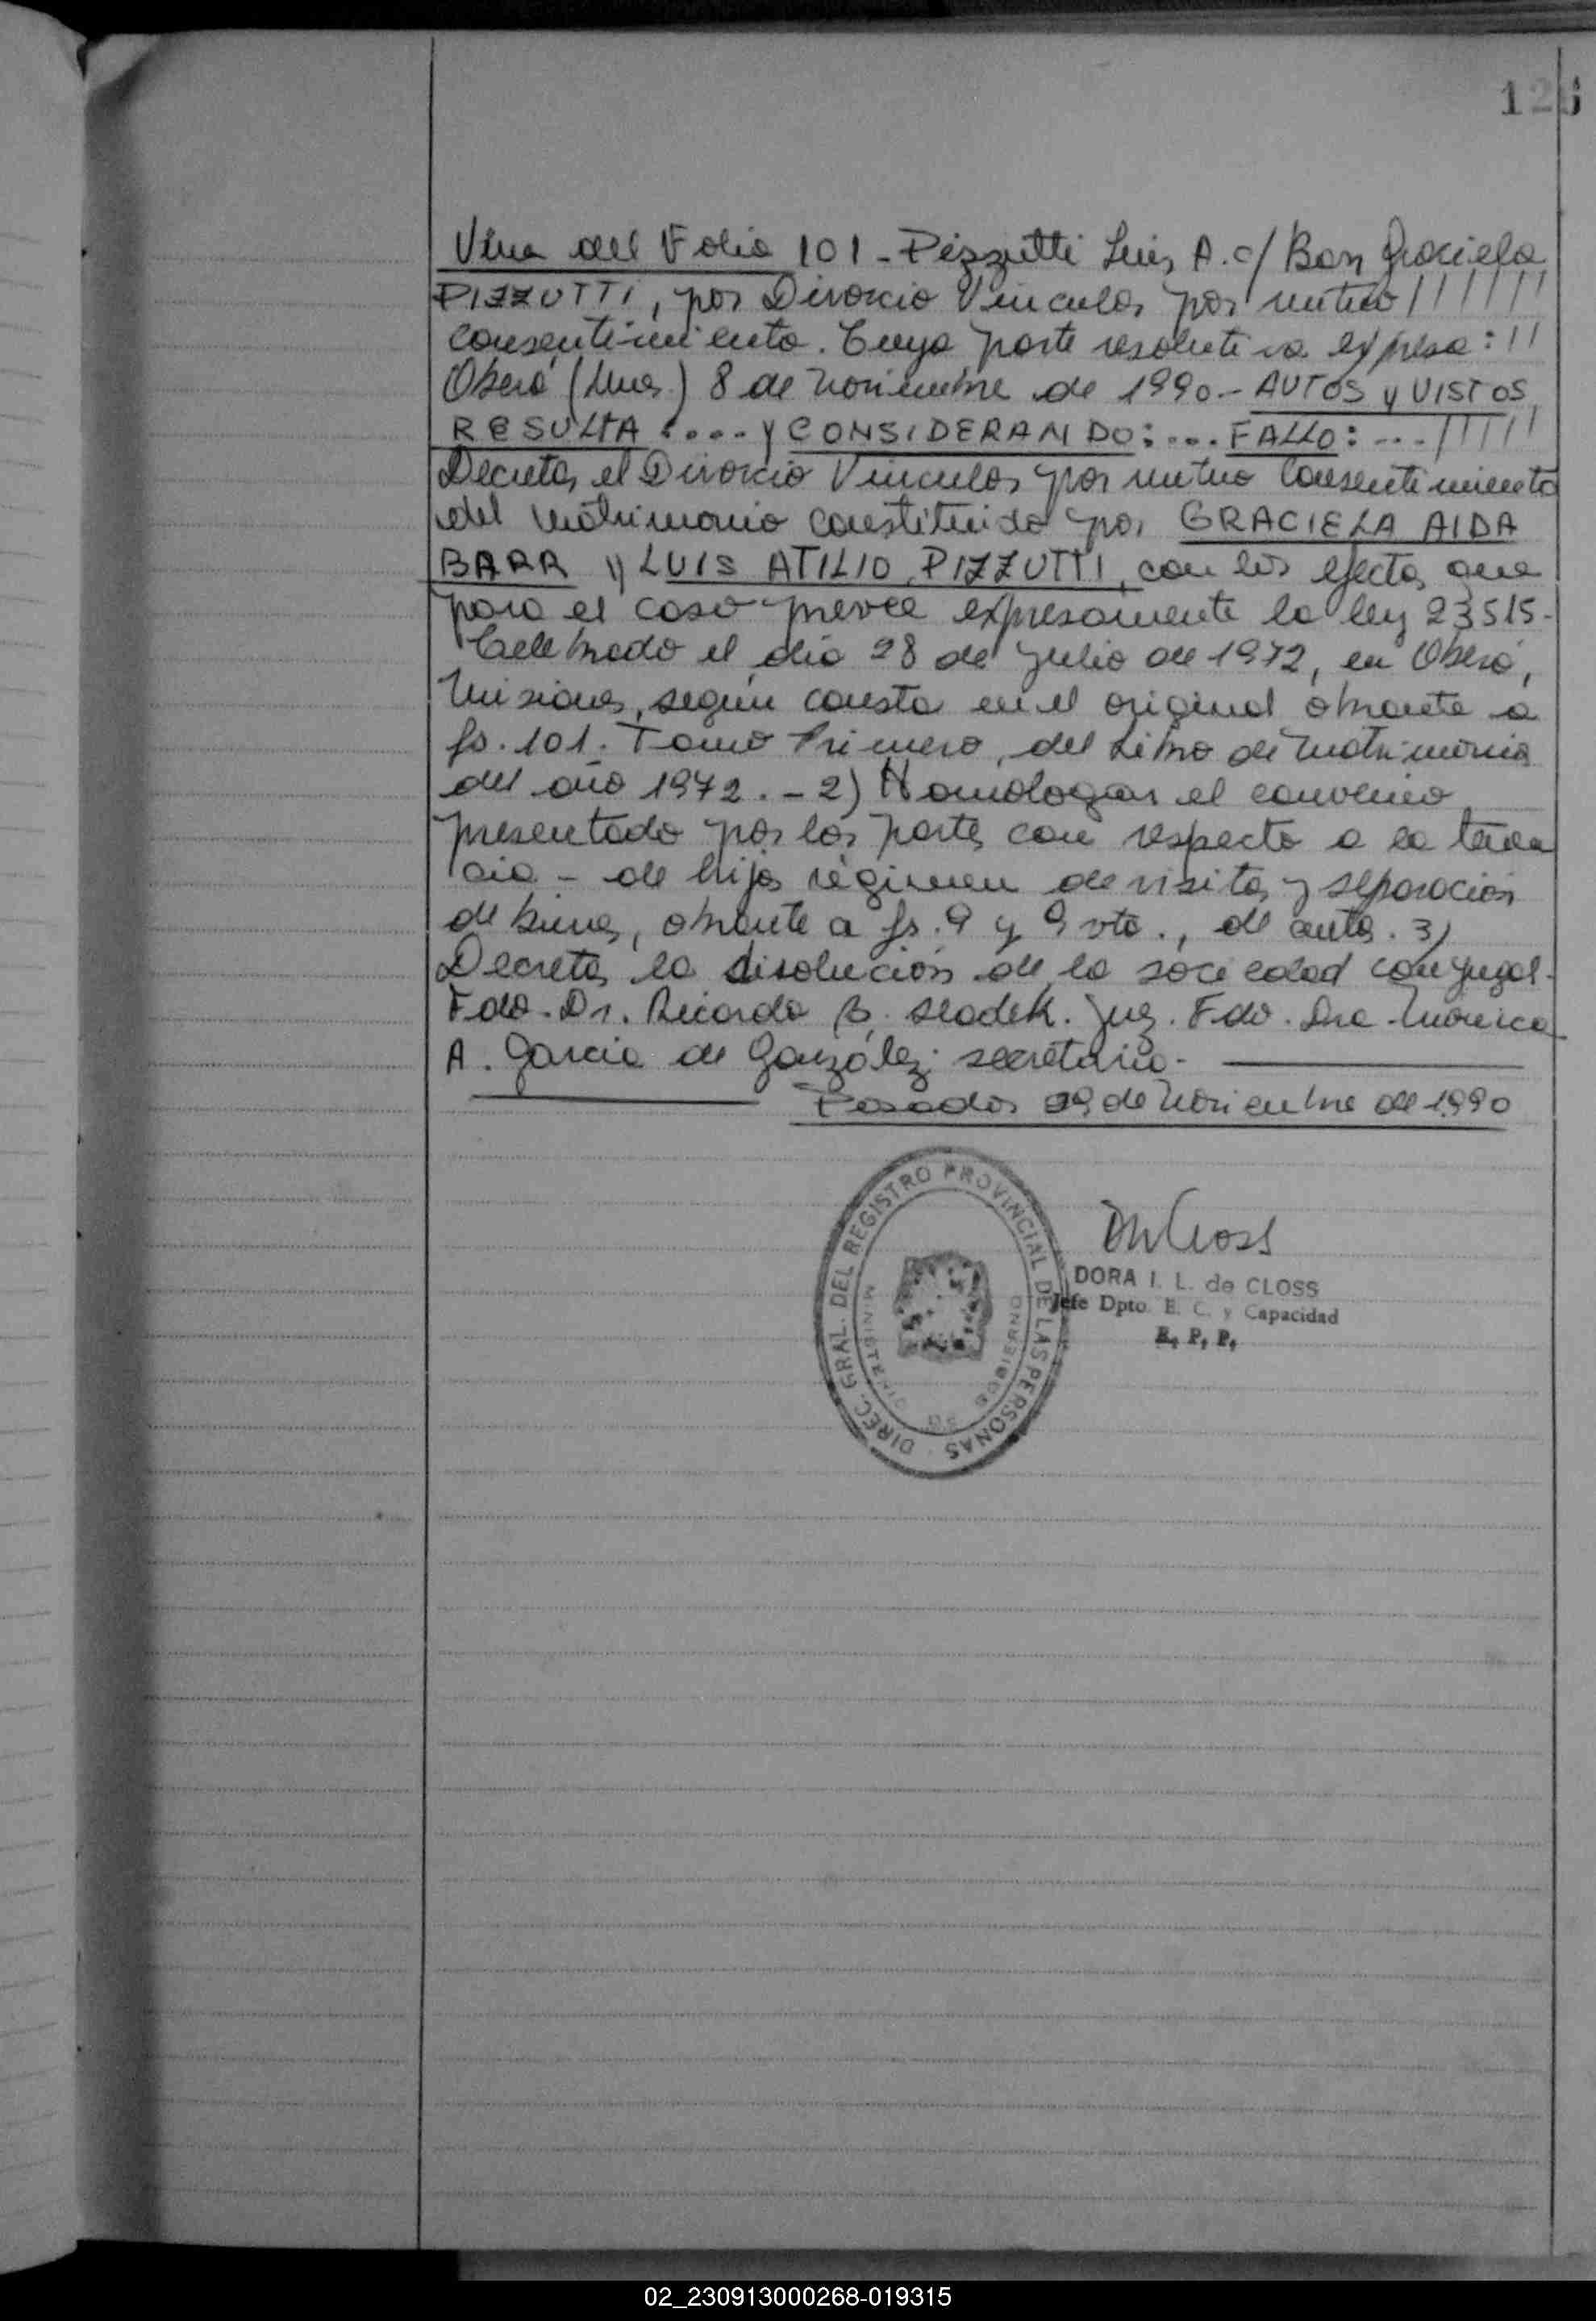 126
Viene del Folio 101 - Pizzutti Luis A. c/ Barr Graciela
PIZZUTTI, por Divorcio Vincular por mutuo //////
consentimiento. Cuya parte resolutiva expresa: //
Oberá (Mnes.) 8 de noviembre de 1990.- AUTOS y VISTOS
RESULTA:... y CONSIDERANDO:... FALLO:... /////
Decretar el Divorcio Vincular por mutuo Consentimiento
del matrimonio constituido por GRACIELA AIDA
BARR y LUIS ATILIO PIZZUTTI, con los efectos que
para el caso prevee expresamente la ley 23515.-
Celebrado el día 28 de Julio de 1972, en Oberá,
Misiones, según consta en el original obrante a
fs. 101. Tomo Primero, del Libro de Matrimonios
del año 1972. - 2) Homologar el convenio
presentado por las partes con respecto a la tenen
cia - de hijos régimen de visitas y separación
de bienes, obrante a fs. 9 y 9 vta., de autos. 3)
Decretar la disolución de la sociedad conyugal.-
Fdo. Dr. Ricardo B. Sladek. Juez. Fdo. Dra. Mónica
A. Garcia de González; secretaria.-
Posadas 29 de Noviembre de 1990
DIREC. GRAL. DEL REGISTRO PROVINCIAL DE LAS PERSONAS
MINISTERIO DE GOBIERNO
DORA I. L. de CLOSS
Jefe Dpto. E. C. y Capacidad
R. P. P.
02_230913000268-019315